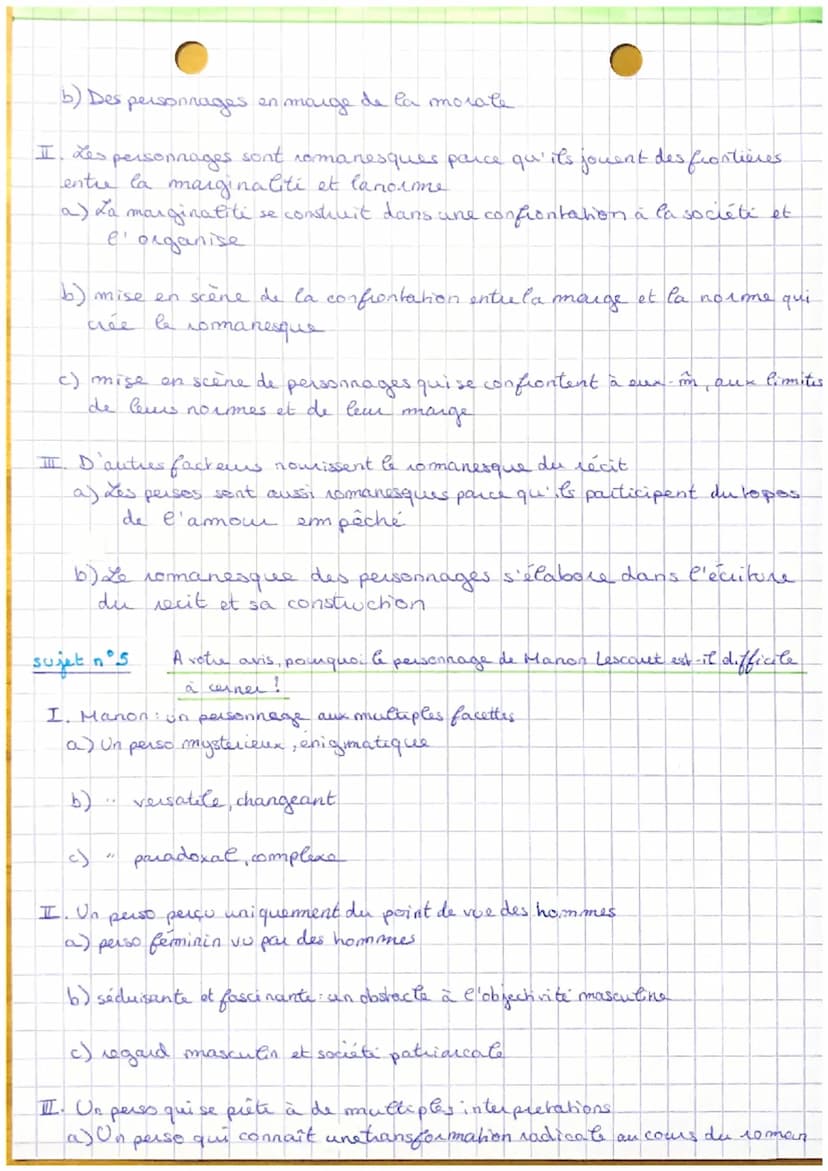 b) Des personnages en marge de la morale
II. Les personnages sont romanesques parce qu'ils jouent des frontières
entre la marginalité et la norme
a) La marginalité se construit dans une confrontation à la société et
l'organise
b) mise en scène de la confrontation entre la marge et la norme qui
crée le romanesque
c) mise en scène de personnages qui se confrontent à eux-m̂, aux limites
de leurs normes et de leur marge
III. D'autres facteurs nourissent le romanesque du récit
a) Les persos sont aussi romanesques parce qu'ils participent du topos
de l'amour empêché
b) Le romanesque des personnages s'élabore dans l'écriture
du recit et sa construction
sujet n°5 A votre avis, pourquoi le personnage de Manon Lescaut est-il difficile
à cerner !
I. Manon : un personnage aux multiples facettes
a) Un perso mysterieux, énigmatique
b) " versatile, changeant
c) " paradoxal, complexe
II. Un perso perçu uniquement du point de vue des hommes
a) perso féminin vu par des hommes
b) séduisante et fascinante : un obstacle à l'objectivité masculine
c) regard masculin et société patriarcale
III. Un perso qui se prête à de multiples interprétations
a) Un perso qui connaît une transformation radicale au cours du roman